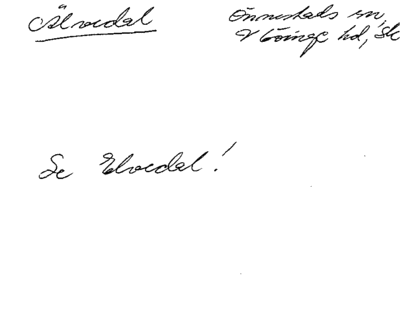 Älvedal
Önnestads sn,
V Göinge hd, Sk
Se Elvedal!